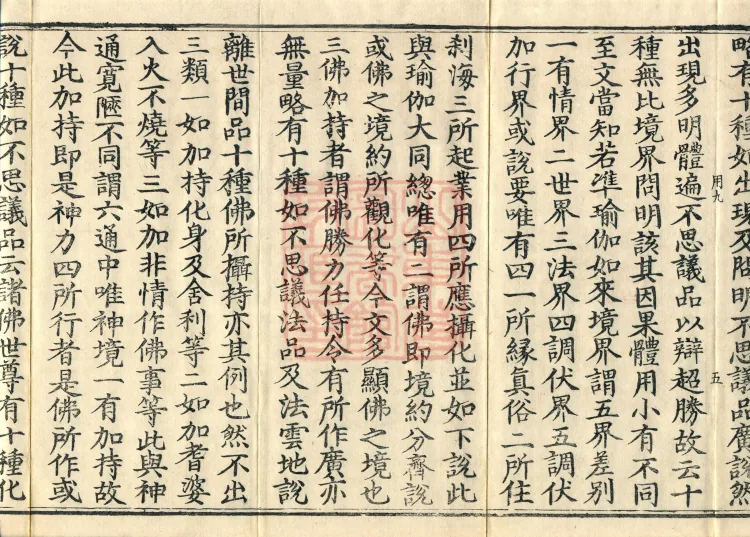 略有十種如出現及問明不思議品廣說然
用九
五
出現多明體遍不思議品以辯超勝故云十
種無比境界問明該其因果體用小有不同
至文當知若準瑜伽如來境界謂五界差別
一有情界二世界三法界四調伏界五調伏
加行界或說要唯有四一所緣真俗二所住
剎海三所起業用四所應攝化並如下說此
與瑜伽大同總唯有二謂佛即境約分齊說
或佛之境約所觀化等今文多顯佛之境也
三佛加持者謂佛勝力任持令有所作廣亦
無量略有十種如不思議法品及法雲地說
離世間品十種佛所攝持亦其例也然不出
三類一如加持化身及舍利等二如加耆婆
入火不燒等三如加非情作佛事等此與神
通寬陿不同謂六通中唯神境一有加持故
今此加持即是神力四所行者是佛所作或
說十種如不思議品云諸佛世尊有十種化